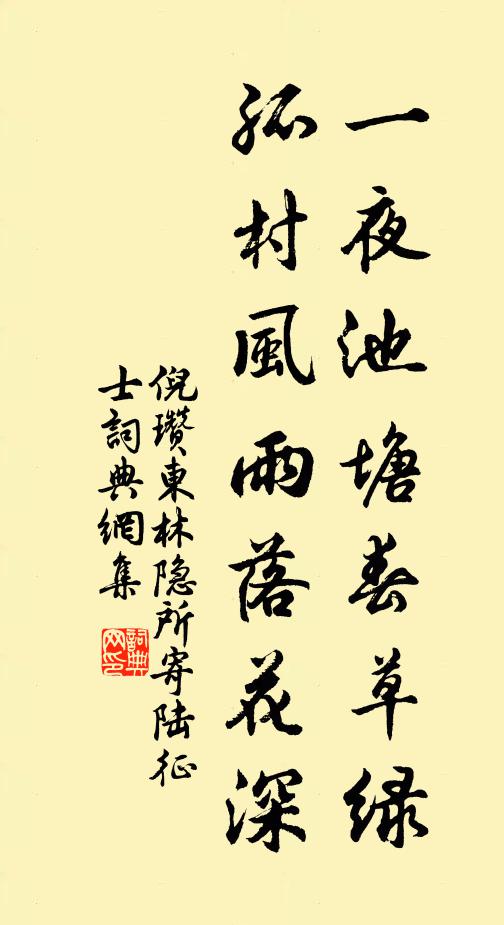 一夜池塘春草绿
孤村風雨落花深
倪瓚東林隐所寄陆征
士詞典網集
詞典网印